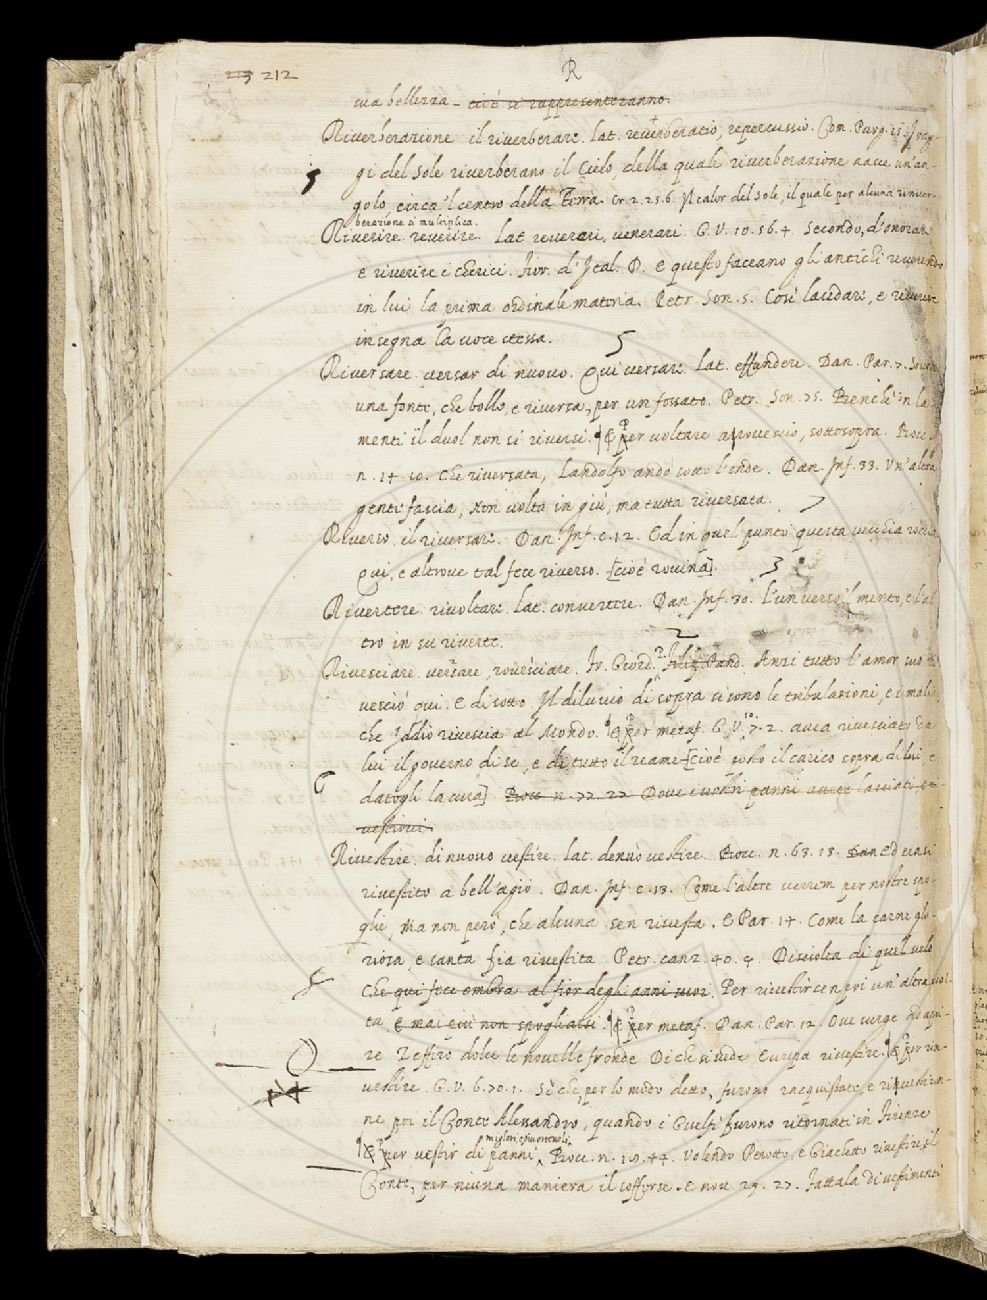 213 212
R
sua bellezza - cioè si rappresenteranno.
Riverberazione il riverberare. lat. reverberatio, repercussio. Com. Purg. 15. I rag-
gi del sole riverberano il Cielo della quale riverberazione nasce un'an-
5
golo circa 'l centro della Terra. Cr. 2. 25. 6. Il calor del sole, il quale per alcuna river-
berazione si multiplica.
Riverire reverire. Lat revereri, venerari. G. V. 10. 56. 4. Secondo, d'onorare
e riverire i cherici. Fior. d'Ital. D. E questo faceano gli antichi riverendo
in lui la prima ordinale materia. Petr. Son. 5. Così laudare, e riverire
insegna la voce stessa.
5
Riversare versar di nuovo. Qui versare. Lat. effundere. Dan. Par. 7. Sovra
una fonte, che bolle, e riversa, per un fossato. Petr. Son. 75. Benchè 'n la-
menti il duol non si riversi. ¶ E per voltare a rovescio, sottosopra. Bocc.
n. 14. 10. Che riversata, Landolfo andò sotto l'onde. Dan. Inf. 33. Un'altra
gente fascia, Non volta in giù, ma tutta riversata.
7
Riverso il riversare. Dan. Inf. c. 12. Ed in quel punto questa vecchia roccia
Qui, e altrove tal fece riverso. [cioè rovina].
3
Rivertere rivoltare. Lat. convertere. Dan. Inf. 30. L'un verso 'l mento, e l'al-
tro in su riverte.
2
Rivesciare versare, rovesciare. Fr. Giord. Anzi tutto l'amor suo ri-
vesciò qui. E di sotto. Il diluvio di sopra si sono le tribulazioni, e i mali
che Iddio rivescia al Mondo. ¶ E per metaf. G. V. 10. 7. 2. avea rivesciato da
lui il governo di se, e di tutto il reame [cioè posto il carico sopra di lui, e
6
datogli la cura] Bocc. n. 77. 27. Dove i vostri panni avete lasciati ri-
vestirvi.
Rivestire. di nuovo vestire. lat. denuò vestire. Bocc. n. 63. 13. Dan Ed ersi
rivestito a bell'agio. Dan. Inf. c. 13. Come l'altre verrem per nostre spo-
glie, Ma non però, che alcuna sen rivesta. E Par. 14. Come la carne glo-
riosa, e santa fia rivestita. Petr. canz. 40. 4. Disciolta di quel velo
Che qui fece ombra al fior degli anni suoi. Per rivestirsen poi un'altra vol-
ta E mai più non spogliarsi. ¶ E per metaf. Dan. Par. 12. Ove surge ad apri-
re Zeffiro dolce le novelle fronde Di che si vede Europa rivestire. ¶ E per in-
vestire. G. V. 6. 70. 1. Sì che, per lo modo detto, furono racquistate, e rinvestin-
ne poi il Conte Alessandro, quando i Guelfi furono ritornati in Firenze
¶ E per vestir di panni migliori, e più orrevoli. Bocc. n. 18. 44. Volendo Perotto, e Giachetto rivestire, il
Conte, per niuna maniera il sofferse. e nov. 29. 27. Fattala di vestimenti